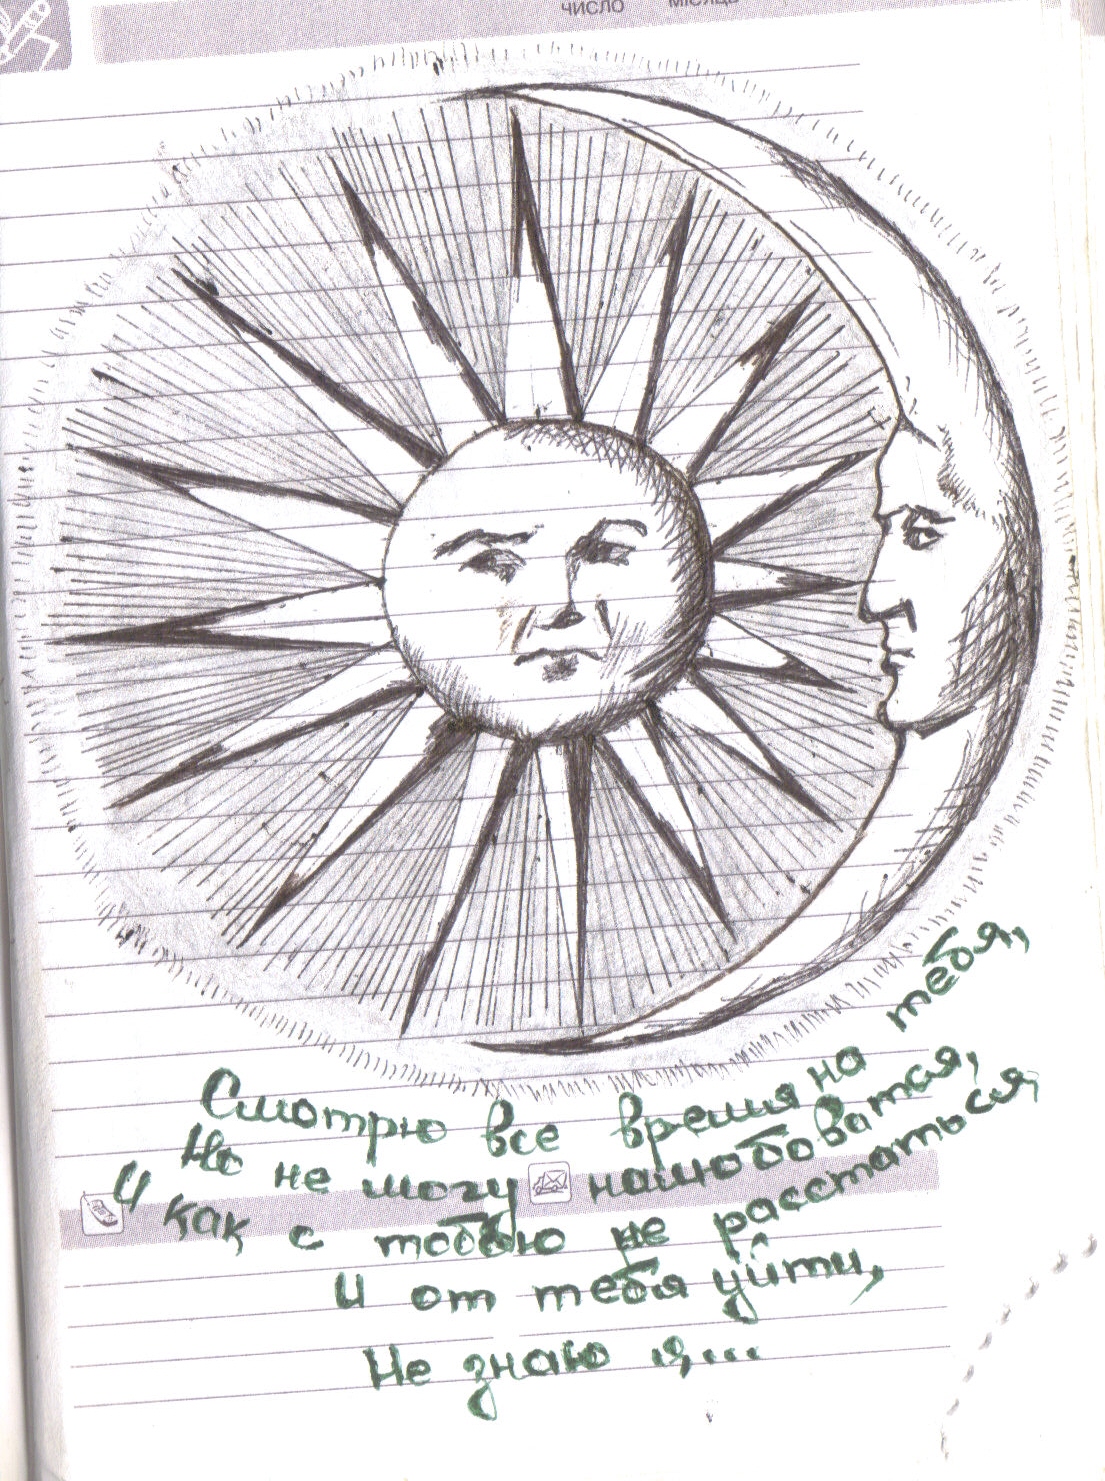 ЧИСЛО МІСЯЦЬ
Смотрю все время на тебя,
Но не могу налюбоватся,
И как с тобою не расстаться,
И от тебя уйти,
Не знаю я...